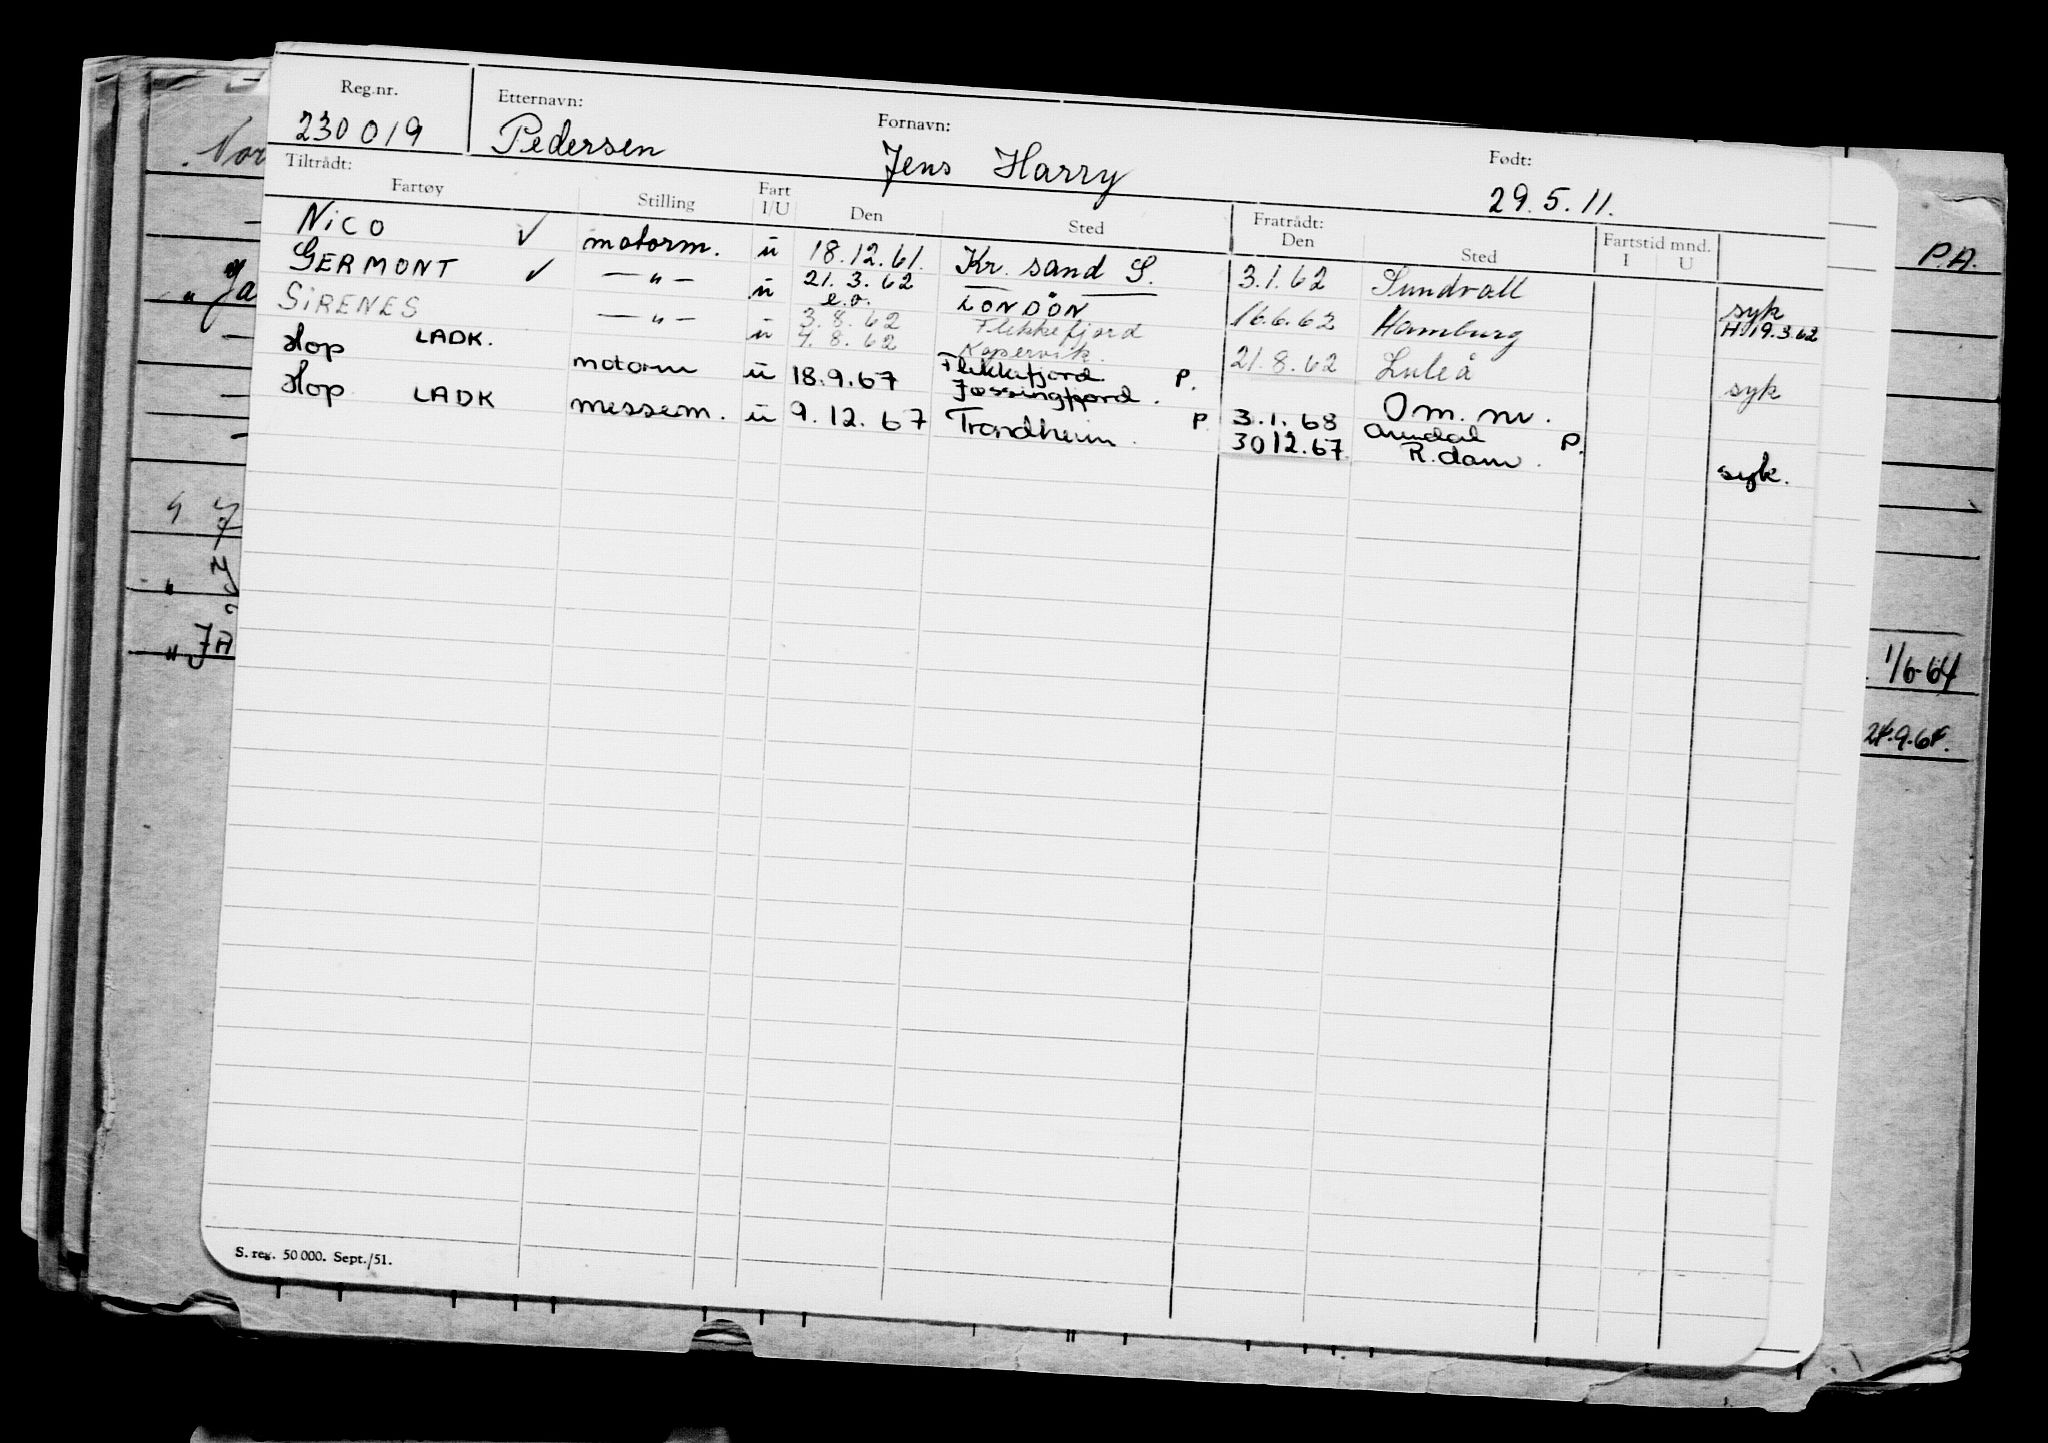 Reg.nr. Etternavn: Fornavn: Født:
230019 Pedersen Jens Harry 29.5.11.
Tiltrådt: Fratrådt:
Fartøy Stilling Fart I/U Den Sted Den Sted Fartstid mnd. I U
NiCO ✓ motorm. u 18.12.61. Kr. sand S. 3.1.62 Sundvall syk
GERMONT ✓ —"— u 21.3.62 e.o. LONDON 16.6.62 Hamburg H 19.3.62
SiRENES —"— u 3.8.62 Flekkefjord 21.8.62 Luleå syk
4.8.62 Kopervik.
Hop LADK. motorm u 18.9.67 Flekkefjord P. Om. nv.
Jøssingfjord. 3.1.68 Arendal P.
Hop LADK messem. u 9.12.67 Trondheim. P. 30 12.67. R.dam. syk.
S. reg. 50 000. Sept./51.
Nor
P.A.
" Ja
" JA
1/6-64
24.9.64.